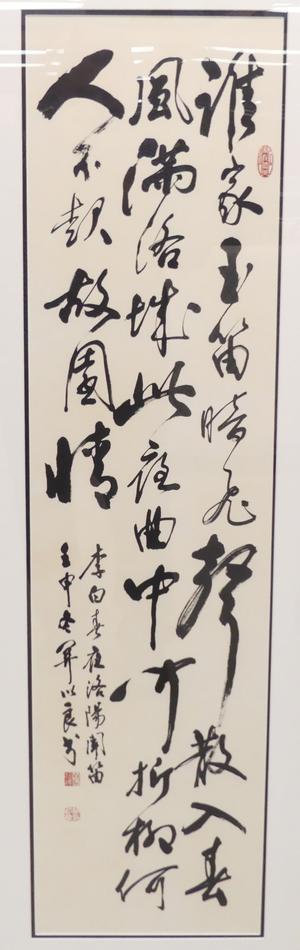 誰家玉笛暗飛聲散入春
風滿洛城此夜曲中聞折柳何
人不起故園情
李白春夜洛陽聞笛
壬申冬以良書